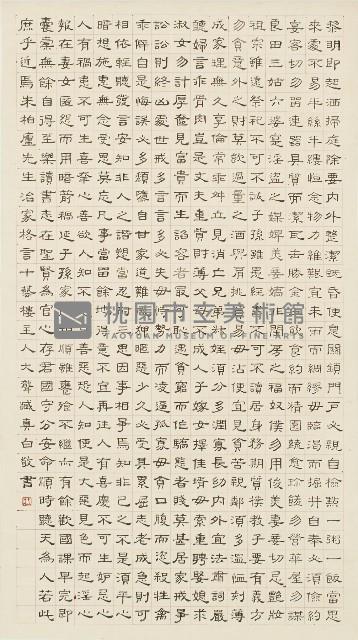 黎明即起洒掃庭除要內外整潔既昏便息關鎖門戶必親自檢點一粥一飯當思
來處不易半絲半縷恒念物力維艱宜未雨而綢繆毋臨渴而掘井自奉必須儉約
宴客切勿留連器具質而潔瓦缶勝金玉飲食約而精園蔬愈珍饈勿營華屋勿謀
良田三姑六婆實淫盜之媒婢美妾嬌非閨房之福奴僕勿用俊美妻妾切忌艷妝
祖宗雖遠祭祀不可不誠子孫雖愚經書不可不讀居身務期質樸教子要有義方
勿貪意外之財莫飲過量之酒與肩挑貿易毋佔便宜見貧苦親鄰須多溫恤刻薄
成家理無久享倫常乖舛立見消亡兄弟叔姪須分多潤寡長幼內外宜法肅辭嚴
聽婦言乖骨肉豈是丈夫重貲財薄父母不成人子嫁女擇佳婿毋索重聘娶媳求
淑女勿計厚奩見富貴而生諂容者最可恥遇貧窮而作驕態者賤莫甚居家戒爭
訟訟則終凶處世戒多言言多必失勿恃勢力而凌逼孤寡毋貪口腹而恣殺牲禽
乖僻自是悔誤必多頹隳自甘家道難成狎暱惡少久必受其累屈志老成急則可
相依輕聽發言安知非人之譖愬當忍耐三思因事相爭焉知非己之不是須平心
暗想施惠無念受恩莫忘凡事當留餘地得意不宜再往人有喜慶不可生妒忌心
人有禍患不可生喜幸心善欲人知不是真善惡恐人知便是大惡見色而起淫心
報在妻女匿怨而用暗箭禍延子孫家門和順雖饔飧不繼亦有餘歡國課早完即
囊橐無餘自得至樂讀書志在聖賢為官心存君國守分安命順時聽天為人若此
庶乎近焉朱柏廬先生治家格言十藝樓主人大聾臧真白敬書
桃園市立美術館
TAOYUAN MUSEUM OF FINE ARTS